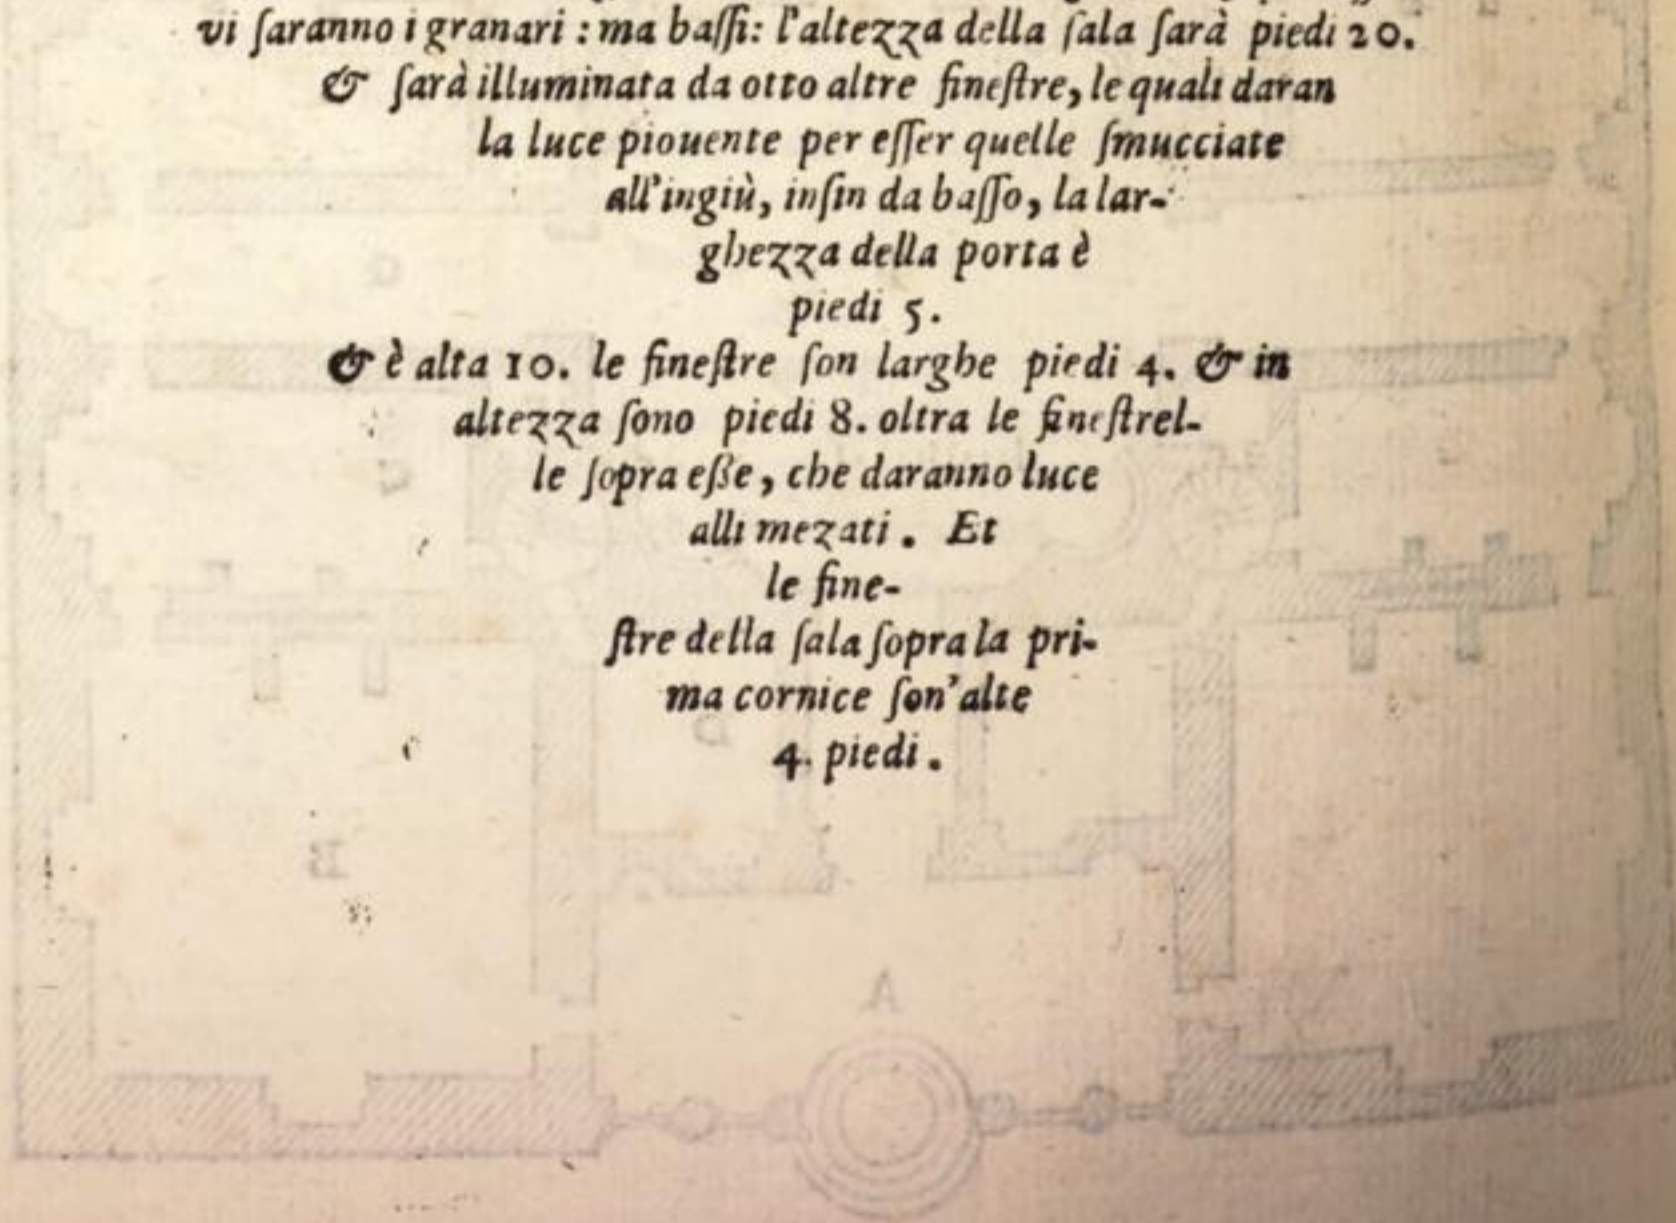 vi ſaranno i granari : ma baſſi: l'altezza della ſala ſarà piedi 20.
& ſarà illuminata da otto altre fineſtre, le quali daran
la luce piouente per eſſer quelle ſmucciate
all'ingiù, inſin da baſſo, la lar-
ghezza della porta è
piedi 5.
& è alta 10. le fineſtre ſon larghe piedi 4. & in
altezza ſono piedi 8. oltra le fineſtrel-
le ſopra eſſe, che daranno luce
alli mezati. Et
le fine-
ſtre della ſala ſopra la pri-
ma cornice ſon'alte
4. piedi.
D
B
A